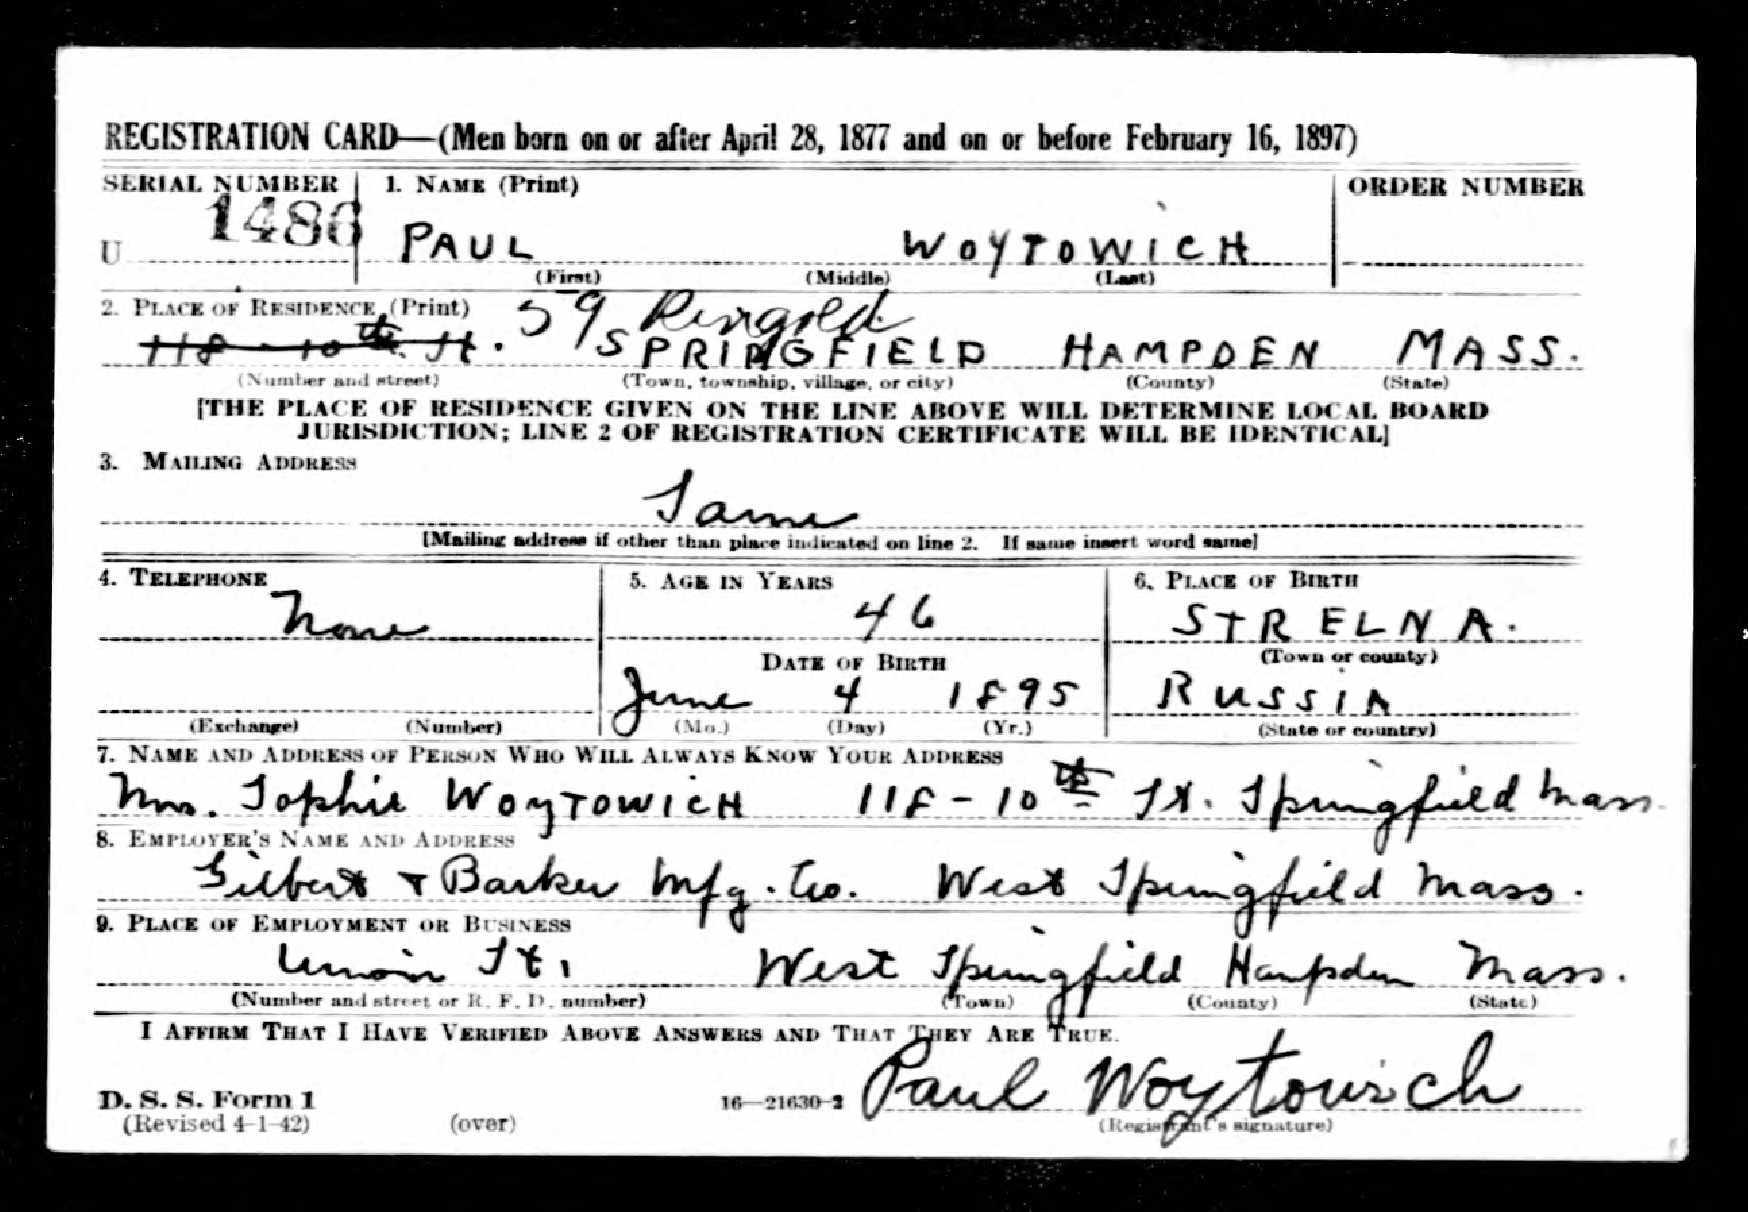 REGISTRATION CARD—(Men born on or after April 28, 1877 and on or before February 16, 1897)
SERIAL NUMBER 1. NAME (Print) ORDER NUMBER
U 1486 PAUL WOYTOWICH
(First) (Middle) (Last)
2. PLACE OF RESIDENCE (Print) 59 Ringold
118 - 10th St. SPRINGFIELD HAMPDEN MASS.
(Number and street) (Town, township, village, or city) (County) (State)
[THE PLACE OF RESIDENCE GIVEN ON THE LINE ABOVE WILL DETERMINE LOCAL BOARD
JURISDICTION; LINE 2 OF REGISTRATION CERTIFICATE WILL BE IDENTICAL]
3. MAILING ADDRESS
Same
[Mailing address if other than place indicated on line 2. If same insert word same]
4. TELEPHONE 5. AGE IN YEARS 6. PLACE OF BIRTH
None 46 STRELNA.
DATE OF BIRTH (Town or county)
June 4 1895 RUSSIA
(Exchange) (Number) (Mo.) (Day) (Yr.) (State or country)
7. NAME AND ADDRESS OF PERSON WHO WILL ALWAYS KNOW YOUR ADDRESS
Mrs. Sophie WOYTOWICH 118 - 10th St. Springfield Mass.
8. EMPLOYER'S NAME AND ADDRESS
Gilbert & Barker Mfg. Co. West Springfield Mass.
9. PLACE OF EMPLOYMENT OR BUSINESS
Union St. West Springfield Hampden Mass.
(Number and street or R. F. D. number) (Town) (County) (State)
I AFFIRM THAT I HAVE VERIFIED ABOVE ANSWERS AND THAT THEY ARE TRUE.
Paul Woytowich
D. S. S. Form 1 16—21630-2
(Revised 4-1-42) (over) (Registrant's signature)